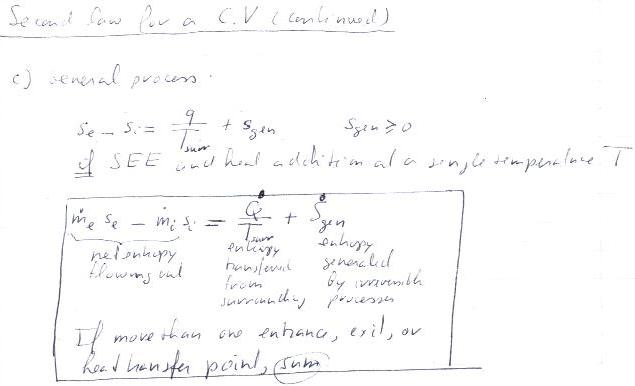 Second law for a C.V (continued)
c) General process.
se - si = q/Tsurr + sgen    sgen ≥ 0
if SEE and heat addition at a single temperature T
ṁe se - ṁi si = Q̇/Tsurr + Ṡgen
net entropy flowing out
entropy transferred from surrounding
entropy generated by irreversible processes
If more than one entrance, exit, or
heat transfer point, sum